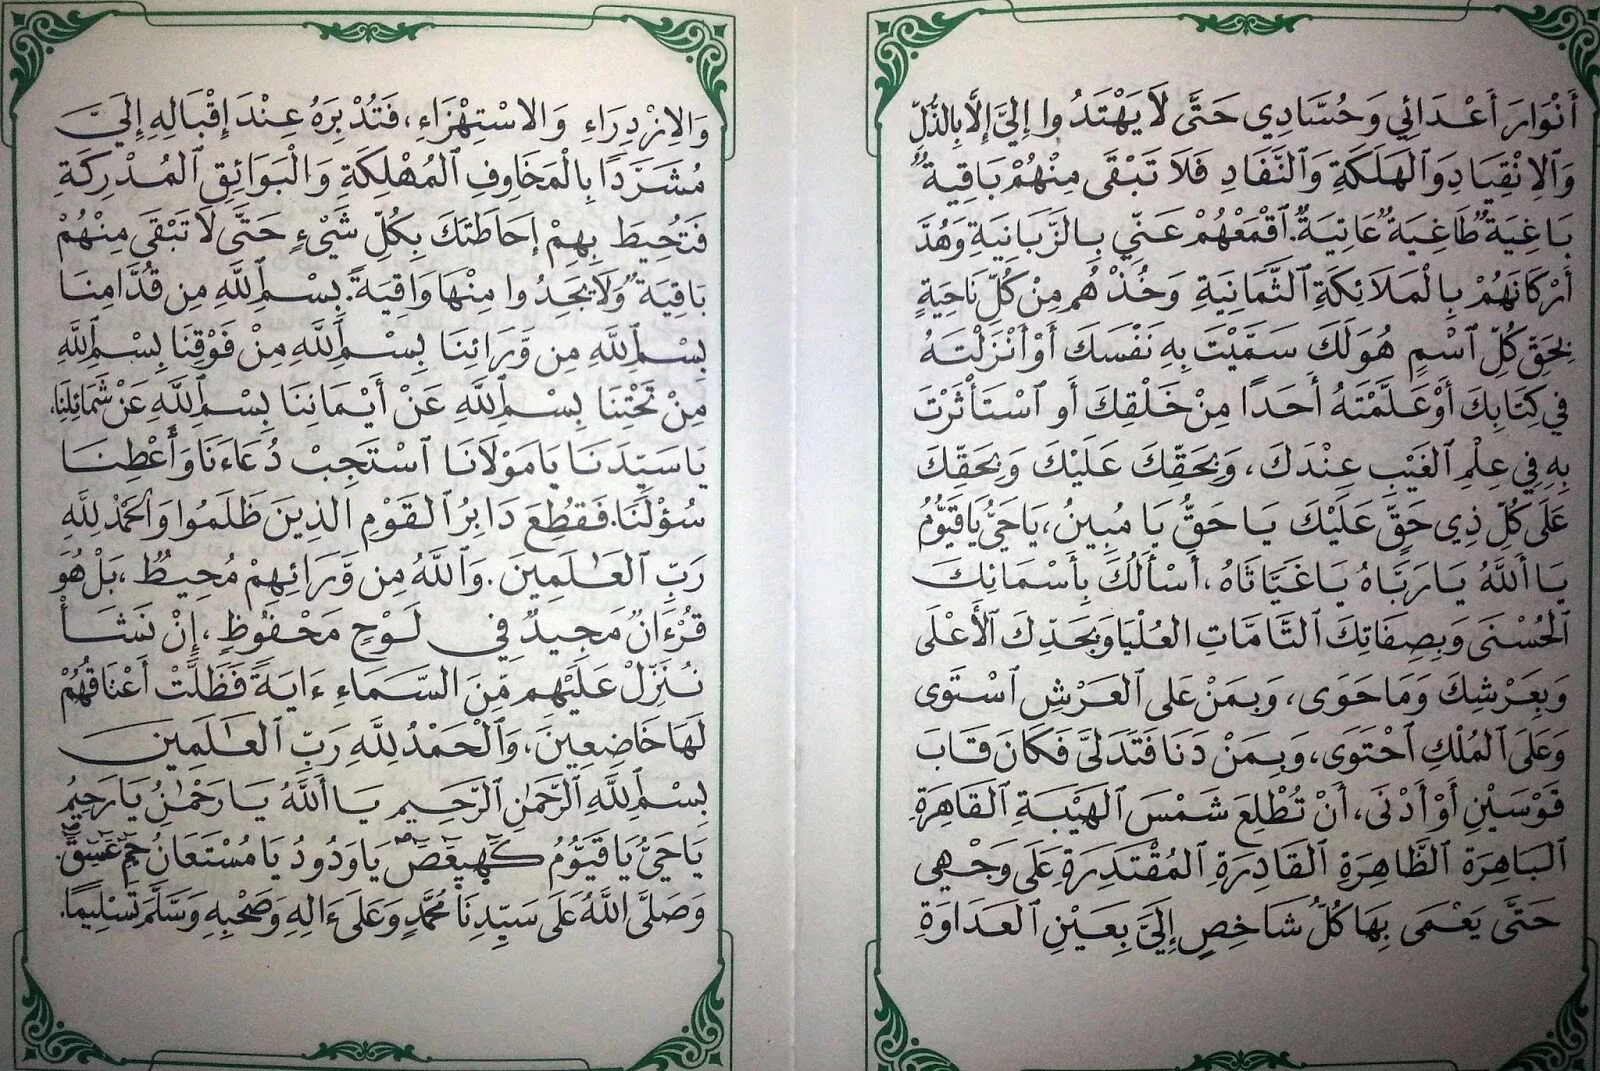 أَنْوَارَ أَعْدَائِي وَحُسَّادِي حَتَّى لَا يَهْتَدُوا إِلَيَّ إِلَّا بِالذُّلِّ
وَٱلِانْقِيَادِ وَٱلْهَلَكَةِ وَالنَّفَادِ فَلَا تَبْقَى مِنْهُمْ بَاقِيةٌ
بَاغِيَةٌ طَاغِيَةٌ عَاتِيَةٌ. ٱقْمَعْهُمْ عَنِّي بِالزَّبَانِيَةِ وَهُدَّ
أَرْكَانَهُمْ بِالْمَلَائِكَةِ ٱلثَّمَانِيَةِ وَخُذْهُم مِنْ كُلِّ نَاحِيَةٍ
بِحَقِّ كُلِّ ٱسْمٍ هُوَ لَكَ سَمَّيْتَ بِهِ نَفْسَكَ أَوْ أَنْزَلْتَهُ
فِي كِتَابِكَ أَوْ عَلَّمْتَهُ أَحَدًا مِنْ خَلْقِكَ أَو ٱسْتَأْثَرْتَ
بِهِ فِي عِلْمِ ٱلْغَيْبِ عِنْدَكَ، وَبِحَقِّكَ عَلَيْكَ وَبِحَقِّكَ
عَلَى كُلِّ ذِي حَقٍّ عَلَيْكَ يَا حَقُّ يَا مُبِينُ، يَا حَيُّ يَا قَيُّومُ
يَا أَللَّهُ يَا رَبَّاهُ يَا غَيَّاثَاهُ، أَسْأَلُكَ بِأَسْمَائِكَ
ٱلْحُسْنَى وَبِصِفَاتِكَ ٱلتَّامَّاتِ ٱلْعُلْيَا وَبِجَدِّكَ ٱلْأَعْلَى
وَبِعَرْشِكَ وَمَا حَوَى، وَبِمَنْ عَلَى ٱلْعَرْشِ ٱسْتَوَى
وَعَلَى ٱلْمُلْكِ ٱحْتَوَى، وَبِمَنْ دَنَا فَتَدَلَّىَ فَكَانَ قَابَ
قَوْسَيْنِ أَوْ أَدْنَى، أَنْ تُطْلِعَ شَمْسَ ٱلْهَيْبَةِ ٱلْقَاهِرَةِ
ٱلْبَاهِرَةِ ٱلظَّاهِرَةِ ٱلْقَادِرَةِ ٱلْمُقْتَدِرَةِ عَلَى وَجْهِي
حَتَّى يَعْمَى بِهَا كُلُّ شَاخِصٍ إِلَيَّ بِعَيْنِ ٱلْعَدَاوَةِ
وَالِازْدِرَاءِ وَالِاسْتِهْزَاءِ، فَتُدْبِرَهُ عِنْدَ إِقْبَالِهِ إِلَيَّ
مُشَرَّدًا بِالْمَخَاوِفِ ٱلْمُهْلِكَةِ وَالْبَوَائِقِ ٱلْمُدْرِكَةِ
فَتُحِيطَ بِهِمْ إحَاطَتَكَ بِكُلِّ شَيْءٍ حَتَّى لَا تَبْقَى مِنْهُمْ
بَاقِيَةٌ وَلَا يَجِدُوا مِنْهَا وَاقِيَةً. بِسْمِ ٱللَّهِ مِن قُدَّامِنَا
بِسْمِ ٱللَّهِ مِن وَّرَائِنَا بِسْمِ ٱللَّهِ مِنْ فَوْقِنَا بِسْمِ ٱللَّهِ
مِنْ تَحْتِنَا بِسْمِ ٱللَّهِ عَنْ أَيْمَانِنَا بِسْمِ ٱللَّهِ عَنْ شَمَائِلِنَا،
يَا سَيِّدَنَا يَا مَوْلَانَا ٱسْتَجِبْ دُعَاءَنَا وَأَعْطِنَا
سُؤْلَنَا. فَقُطِعَ دَابِرُ ٱلْقَوْمِ ٱلَّذِينَ ظَلَمُوا وَٱلْحَمْدُ لِلَّهِ
رَبِّ ٱلْعَـٰلَمِينَ. وَٱللَّهُ مِن وَّرَائِهِمْ مُحِيطٌ، بَلْ هُوَ
قُرْءَانٌ مَجِيدٌ فِي لَوْحٍ مَحْفُوظٍ، إِنْ نَشَأْ
نُنَزِّلْ عَلَيْهِم مِّنَ ٱلسَّمَاءِ ءَايَةً فَظَلَّتْ أَعْنَاقُهُمْ
لَهَا خَاضِعِينَ، وَٱلْحَمْدُ لِلَّهِ رَبِّ ٱلْعَـٰلَمِينَ
بِسْمِ ٱللَّهِ ٱلرَّحْمَٰنِ ٱلرَّحِيمِ يَا أَللَّهُ يَا رَحْمَٰنُ يَا رَحِيمُ
يَا حَيُّ يَا قَيُّومُ كٓهيعٓصٓ يَا وَدُودُ يَا مُسْتَعَانُ حمٓ عٓسٓقٓ.
وَصَلَّى اللَّهُ عَلَى سَيِّدِنَا مُحَمَّدٍ وَعَلَى ءَالِهِ وَصَحْبِهِ وَسَلَّمَ تَسْلِيمًا.